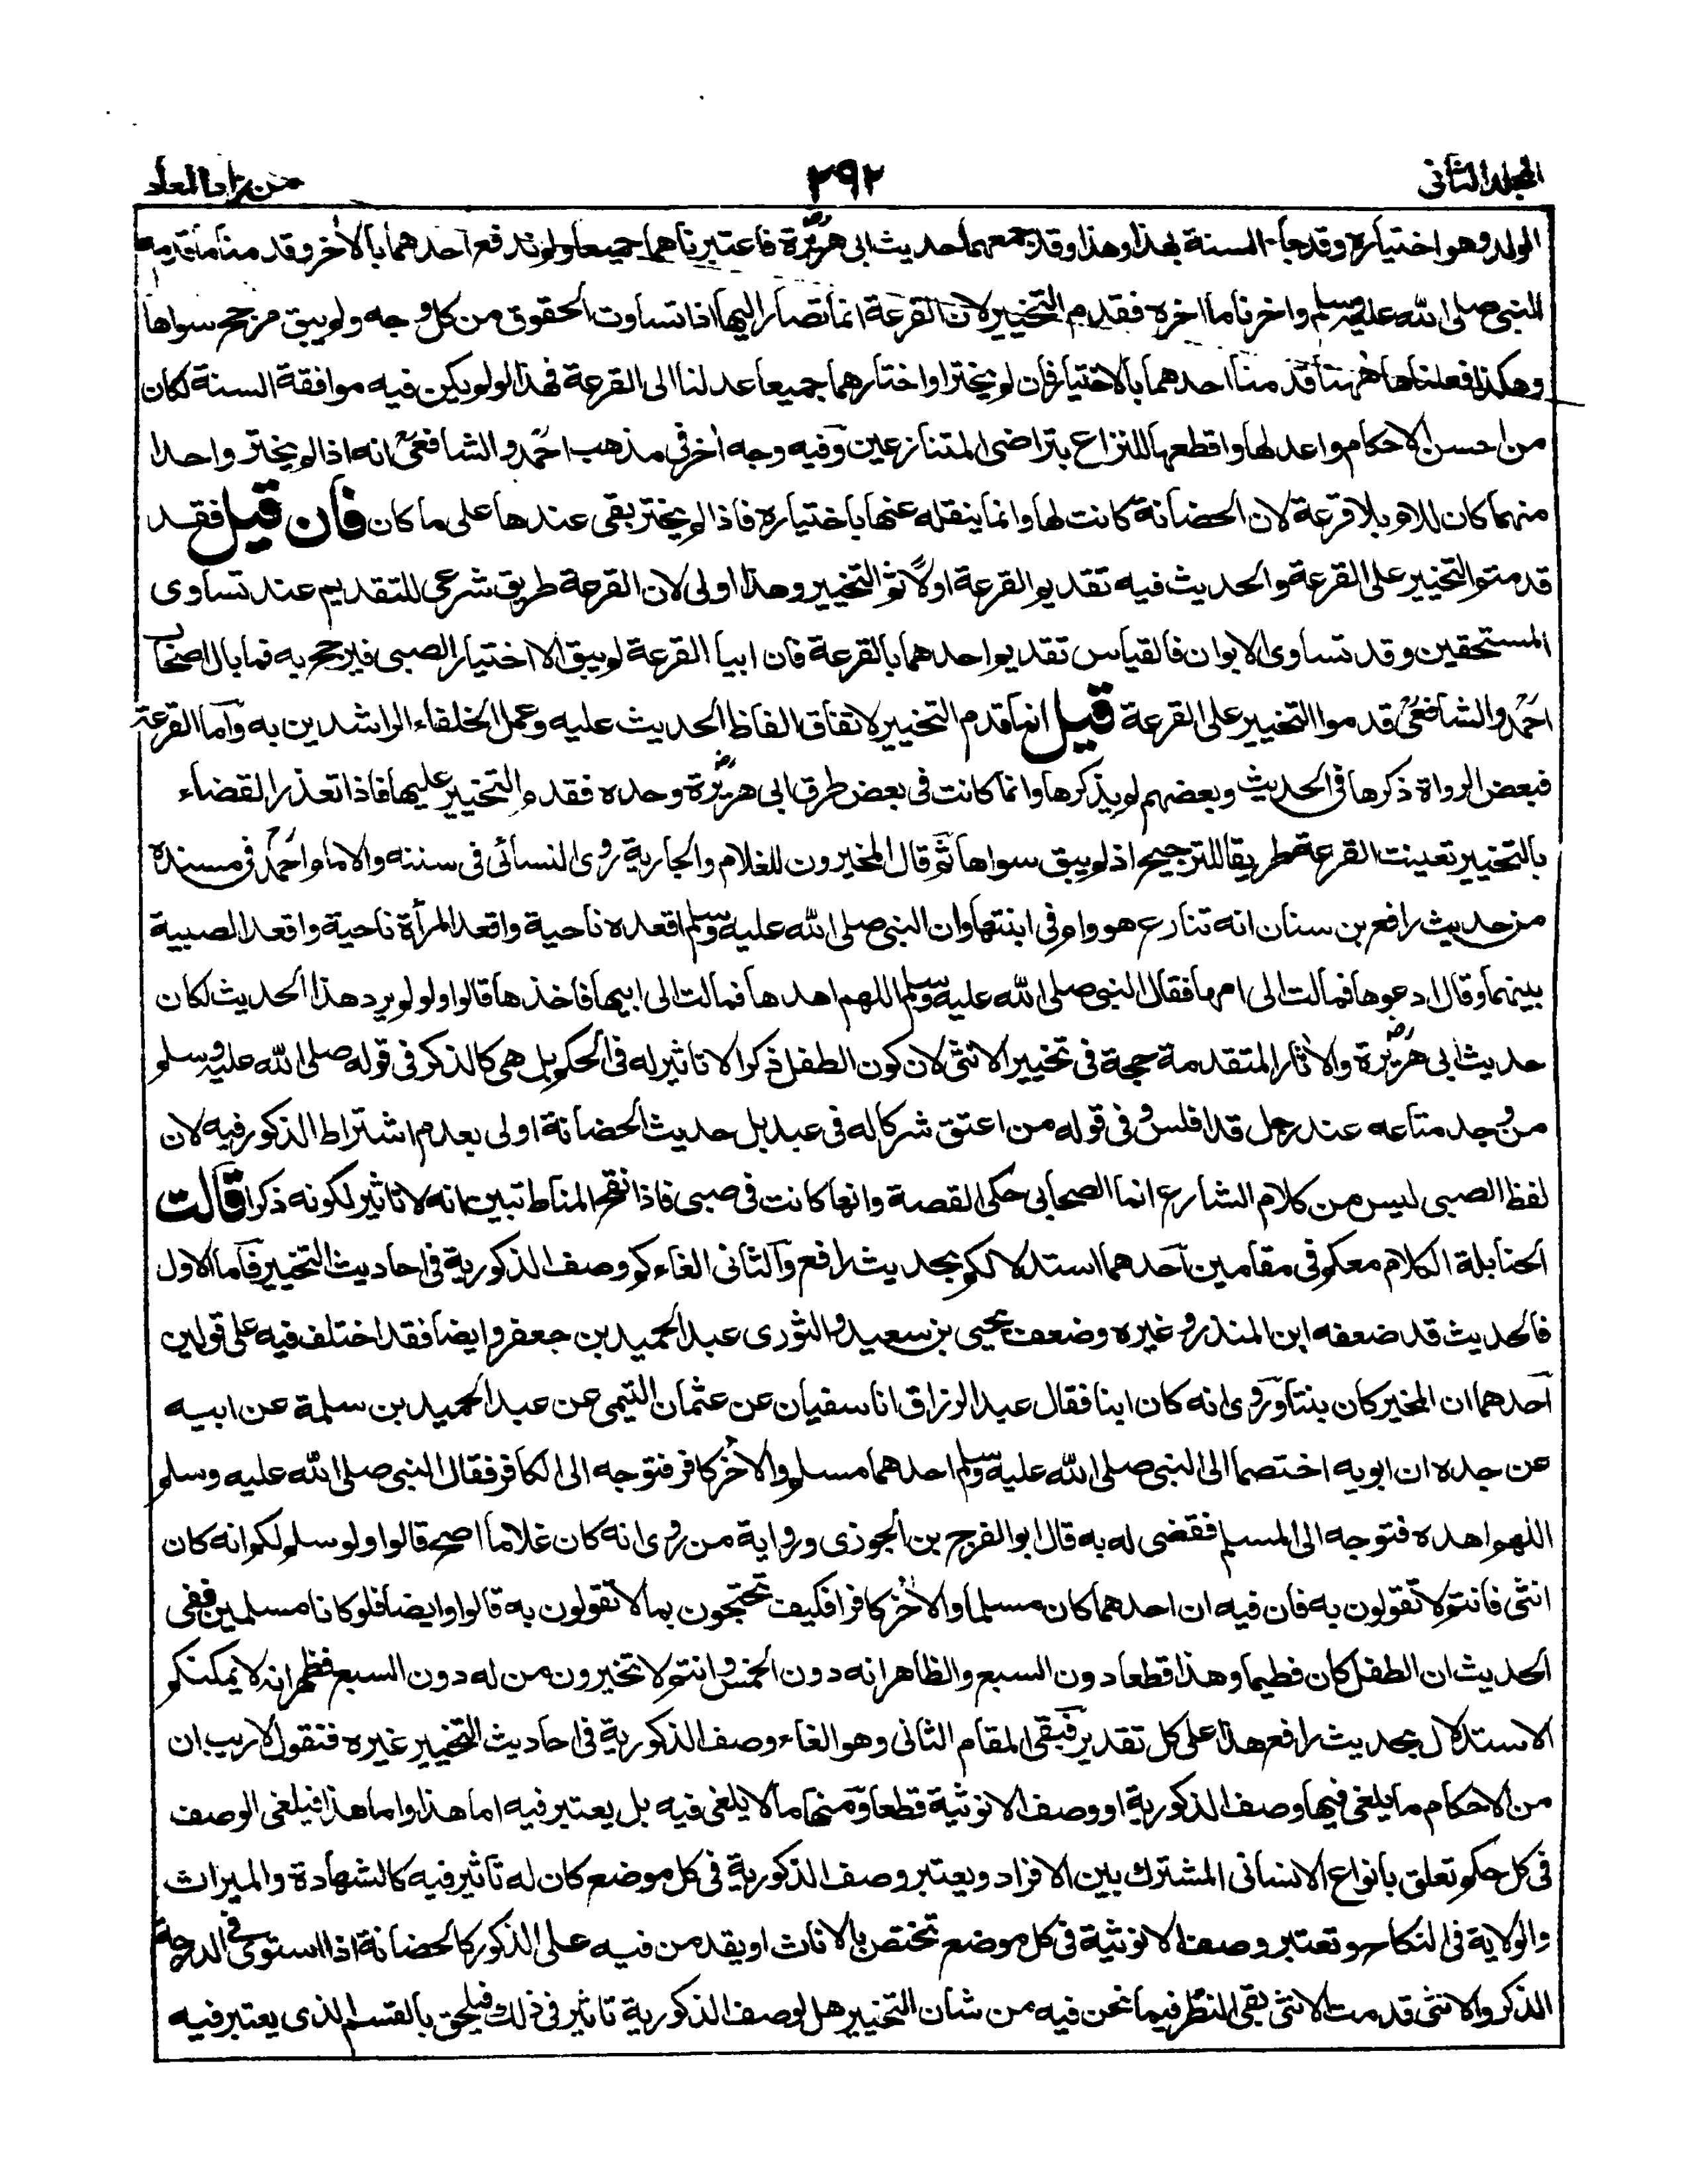 المجلد الثانى
٢٩٢
من زاد المعاد
الولد وهو اختياره وقد جاءت السنة بهذا وهذا وقد جمعهما حديث ابى هريرة رض فاعتبرناهما جميعا ولم ندفع احدهما بالآخر وقد منا ما قدمه
النبى صلى الله عليه وسلم واخرنا ما اخره فقدم التخيير لان القرعة انما تصار اليها اذا تساوت الحقوق من كل وجه ولم يبق مرجح سواها
وهكذا فعلنا ههنا قد منا احدهما بالاختيار فان لم يختر او اختارهما جميعا عدلنا الى القرعة فهذا لو لم يكن فيه موافقة السنة لكان
من احسن الاحكام واعدلها واقطعها للنزاع بتراضى المتنازعين وفيه وجه آخر فى مذهب احمد والشافعى انه اذا لم يختر واحدا
منهما كان للام بلا قرعة لان الحضانة كانت لها وانما ينقله عنها باختياره فاذا لم يختر بقى عندها على ما كان فان قيل فقد
قدمتم التخيير على القرعة والحديث فيه تقديم القرعة اولا ثم التخيير وهذا اولى لان القرعة طريق شرعى للتقديم عند تساوى
المستحقين وقد تساوى الابوان فالقياس تقديم احدهما بالقرعة فان ابيا القرعة لم يبق الا اختيار الصبى فيرجح به فما بال اصحاب
احمد والشافعى قدموا التخيير على القرعة قيل انما قدم التخيير لاتفاق الفاظ الحديث عليه وعمل الخلفاء الراشدين به وأما القرعة
فبعض الرواة ذكرها فى الحديث وبعضهم لم يذكرها وانما كانت فى بعض طرق ابى هريرة رض وحده فقدم التخيير عليها فاذا تعذر القضاء
بالتخيير تعينت القرعة طريقا للترجيح اذ لم يبق سواها ثم قال المخيرون للغلام والجارية روى النسائى فى سننه والامام احمد فى مسنده
من حديث رافع بن سنان انه تنازع هو وام فى ابنتها وان النبى صلى الله عليه وسلم اقعده ناحية واقعد المرأة ناحية واقعد الصبية
بينهما وقال ادعوها فمالت الى امها فقال النبى صلى الله عليه وسلم اللهم اهدها فمالت الى ابيها فاخذها قالوا ولو لم يرد هذا الحديث لكان
حديث ابى هريرة رض والآثار المتقدمة حجة فى تخيير الانثى لان كون الطفل ذكرا لا تاثير له فى الحكم بل هى كالذكر فى قوله صلى الله عليه وسلم
من وجد متاعه عند رجل قد افلس وفى قوله من اعتق شركا له فى عبد بل حديث الحضانة اولى بعدم اشتراط الذكور فيه لان
لفظ الصبى ليس من كلام الشارع انما الصحابى حكى القصة وانها كانت فى صبى فاذا نقح المناط تبين انه لا تاثير لكونه ذكرا قالت
الحنابلة الكلام معكم فى مقامين أحدهما استدلالكم بحديث رافع والثانى الغاءكم وصف الذكورية فى احاديث التخيير فأما الاول
فالحديث قد ضعفه ابن المنذر وغيره وضعف يحيى بن سعيد والثورى عبد الحميد بن جعفر وايضا فقد اختلف فيه على قولين
أحدهما ان المخير كان بنتا وروى انه كان ابنا فقال عبد الرزاق انا سفيان عن عثمان التيمى عن عبد الحميد بن سلمة عن ابيه
عن جده ان ابويه اختصما الى النبى صلى الله عليه وسلم احدهما مسلم والآخر كافر فتوجه الى الكافر فقال النبى صلى الله عليه وسلم
اللهم اهده فتوجه الى المسلم فقضى له به قال ابو الفرج بن الجوزى ورواية من روى انه كان غلاما اصح قالوا ولو سلم لكم انه كان
انثى فانتم لا تقولون به فان فيه ان احدهما كان مسلما والآخر كافرا فكيف تحتجون بما لا تقولون به قالوا وايضا فلو كانا مسلمين ففى
الحديث ان الطفل كان فطيما وهذا قطعا دون السبع والظاهر انه دون الخمس وانتم لا تخيرون من له دون السبع فظهر انه لا يمكنكم
الاستدلال بحديث رافع هذا على كل تقدير فبقى المقام الثانى وهو الغاء وصف الذكورية فى احاديث التخيير غيره فنقول لا ريب ان
من الاحكام ما يلغى فيها وصف الذكورية او وصف الانوثية قطعا ومنها ما لا يلغى فيه بل يعتبر فيه اما هذا واما هذا فيلغى الوصف
فى كل حكم تعلق بانواع الانسانى المشترك بين الافراد ويعتبر وصف الذكورية فى كل موضع كان له تاثير فيه كالشهادة والميراث
والولاية فى النكاح وتعتبر وصف الانوثية فى كل موضع تختص بالاناث او يقدمن فيه على الذكور كالحضانة اذا استوى فى الدرجة
الذكر والانثى قدمت الانثى بقى النظر فيما نحن فيه من شان التخيير هل لوصف الذكورية تاثير فى ذلك فيلحق بالقسم الذى يعتبر فيه